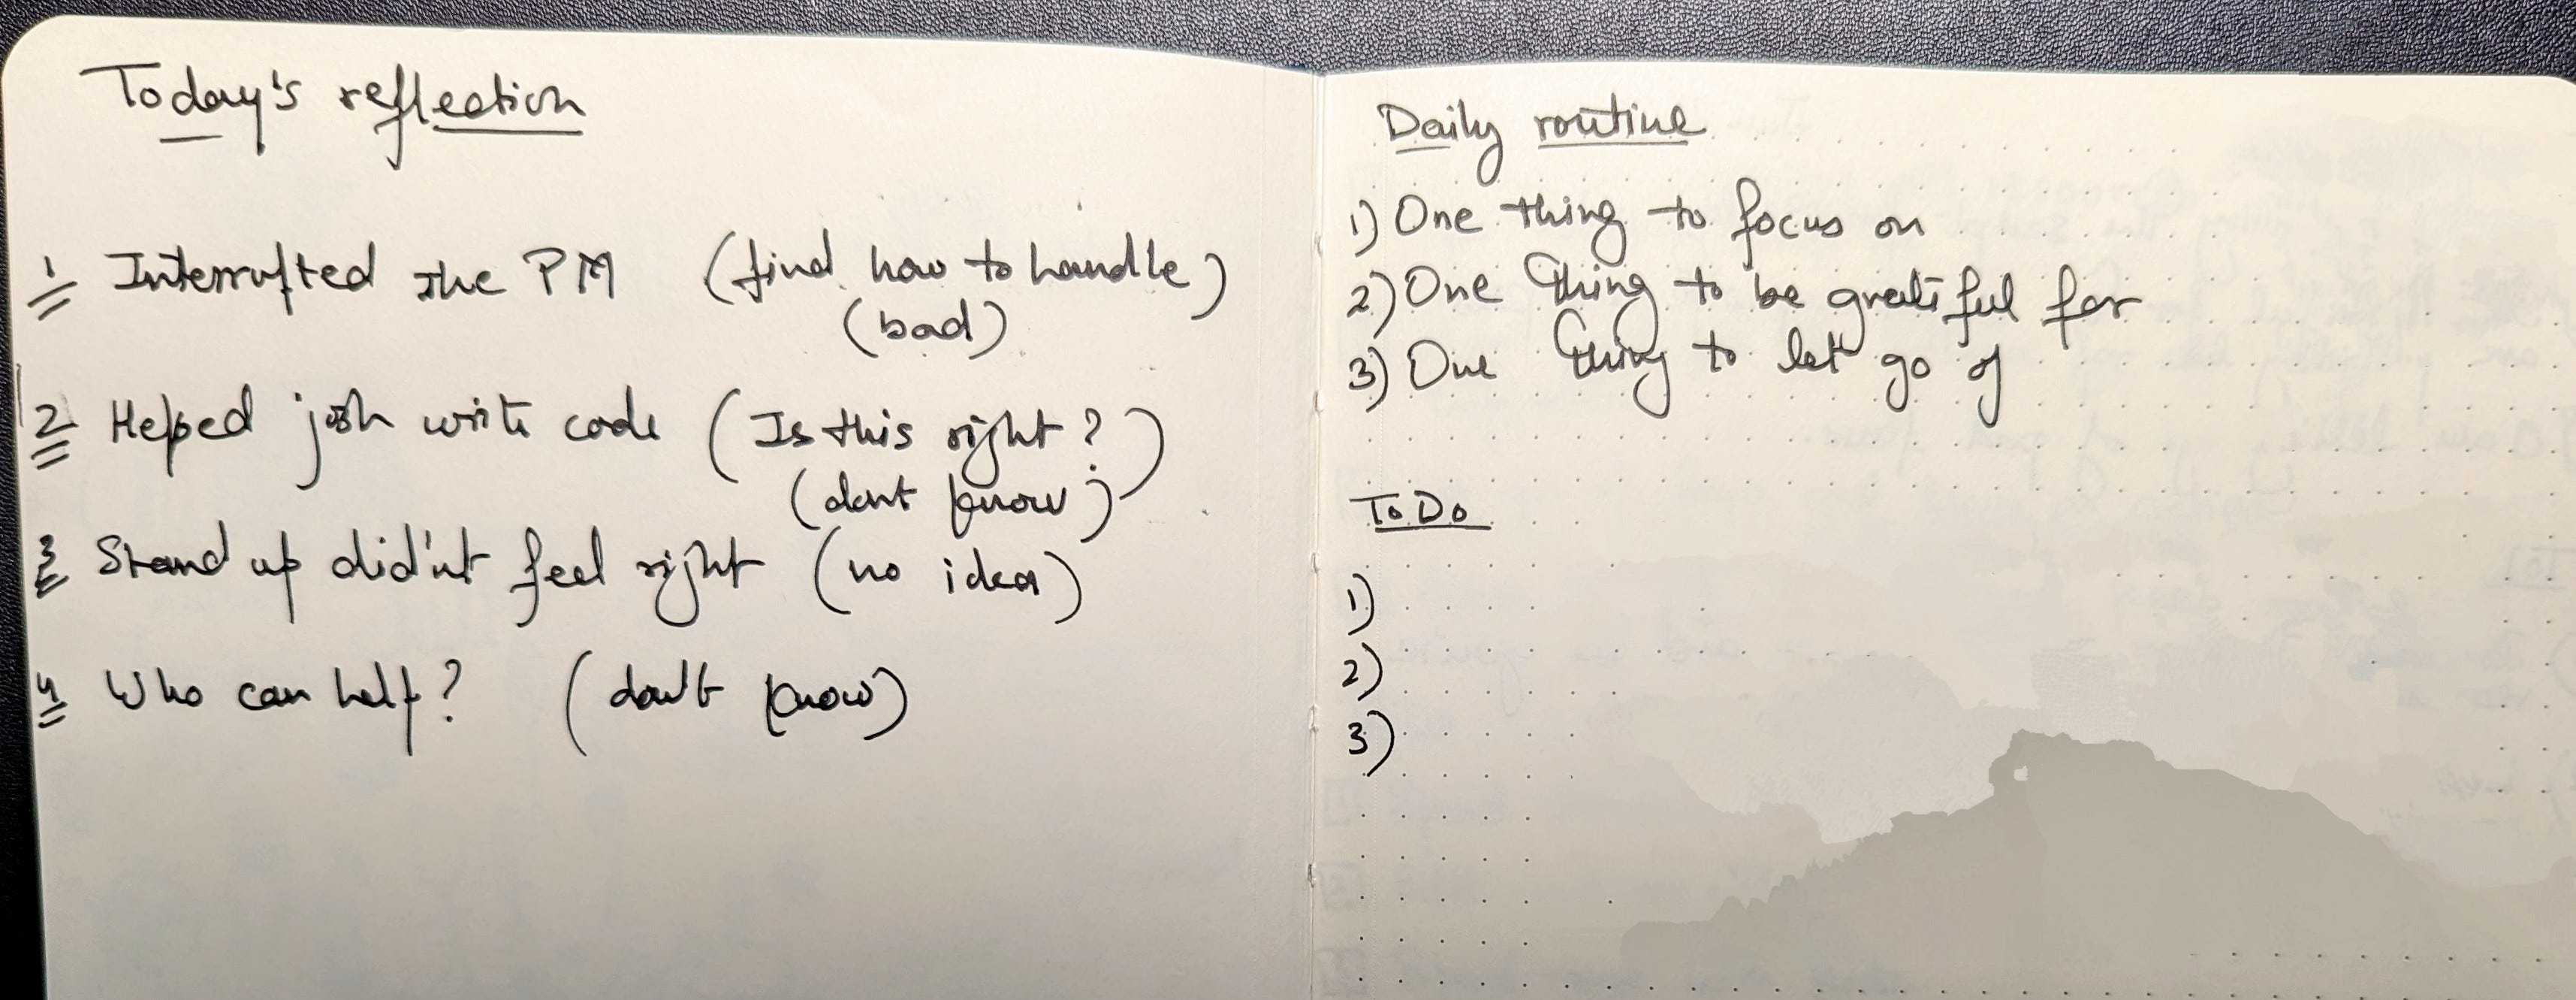 Today's reflection
1 Interrupted the PM (find how to handle)
(bad)
2 Helped josh write code (Is this right?)
(dont know)
3 Stand up did'nt feel right (no idea)
4 Who can help? (don't know)
Daily routine
1) One thing to focus on
2) One thing to be grateful for
3) One thing to let go of
To Do
1)
2)
3)